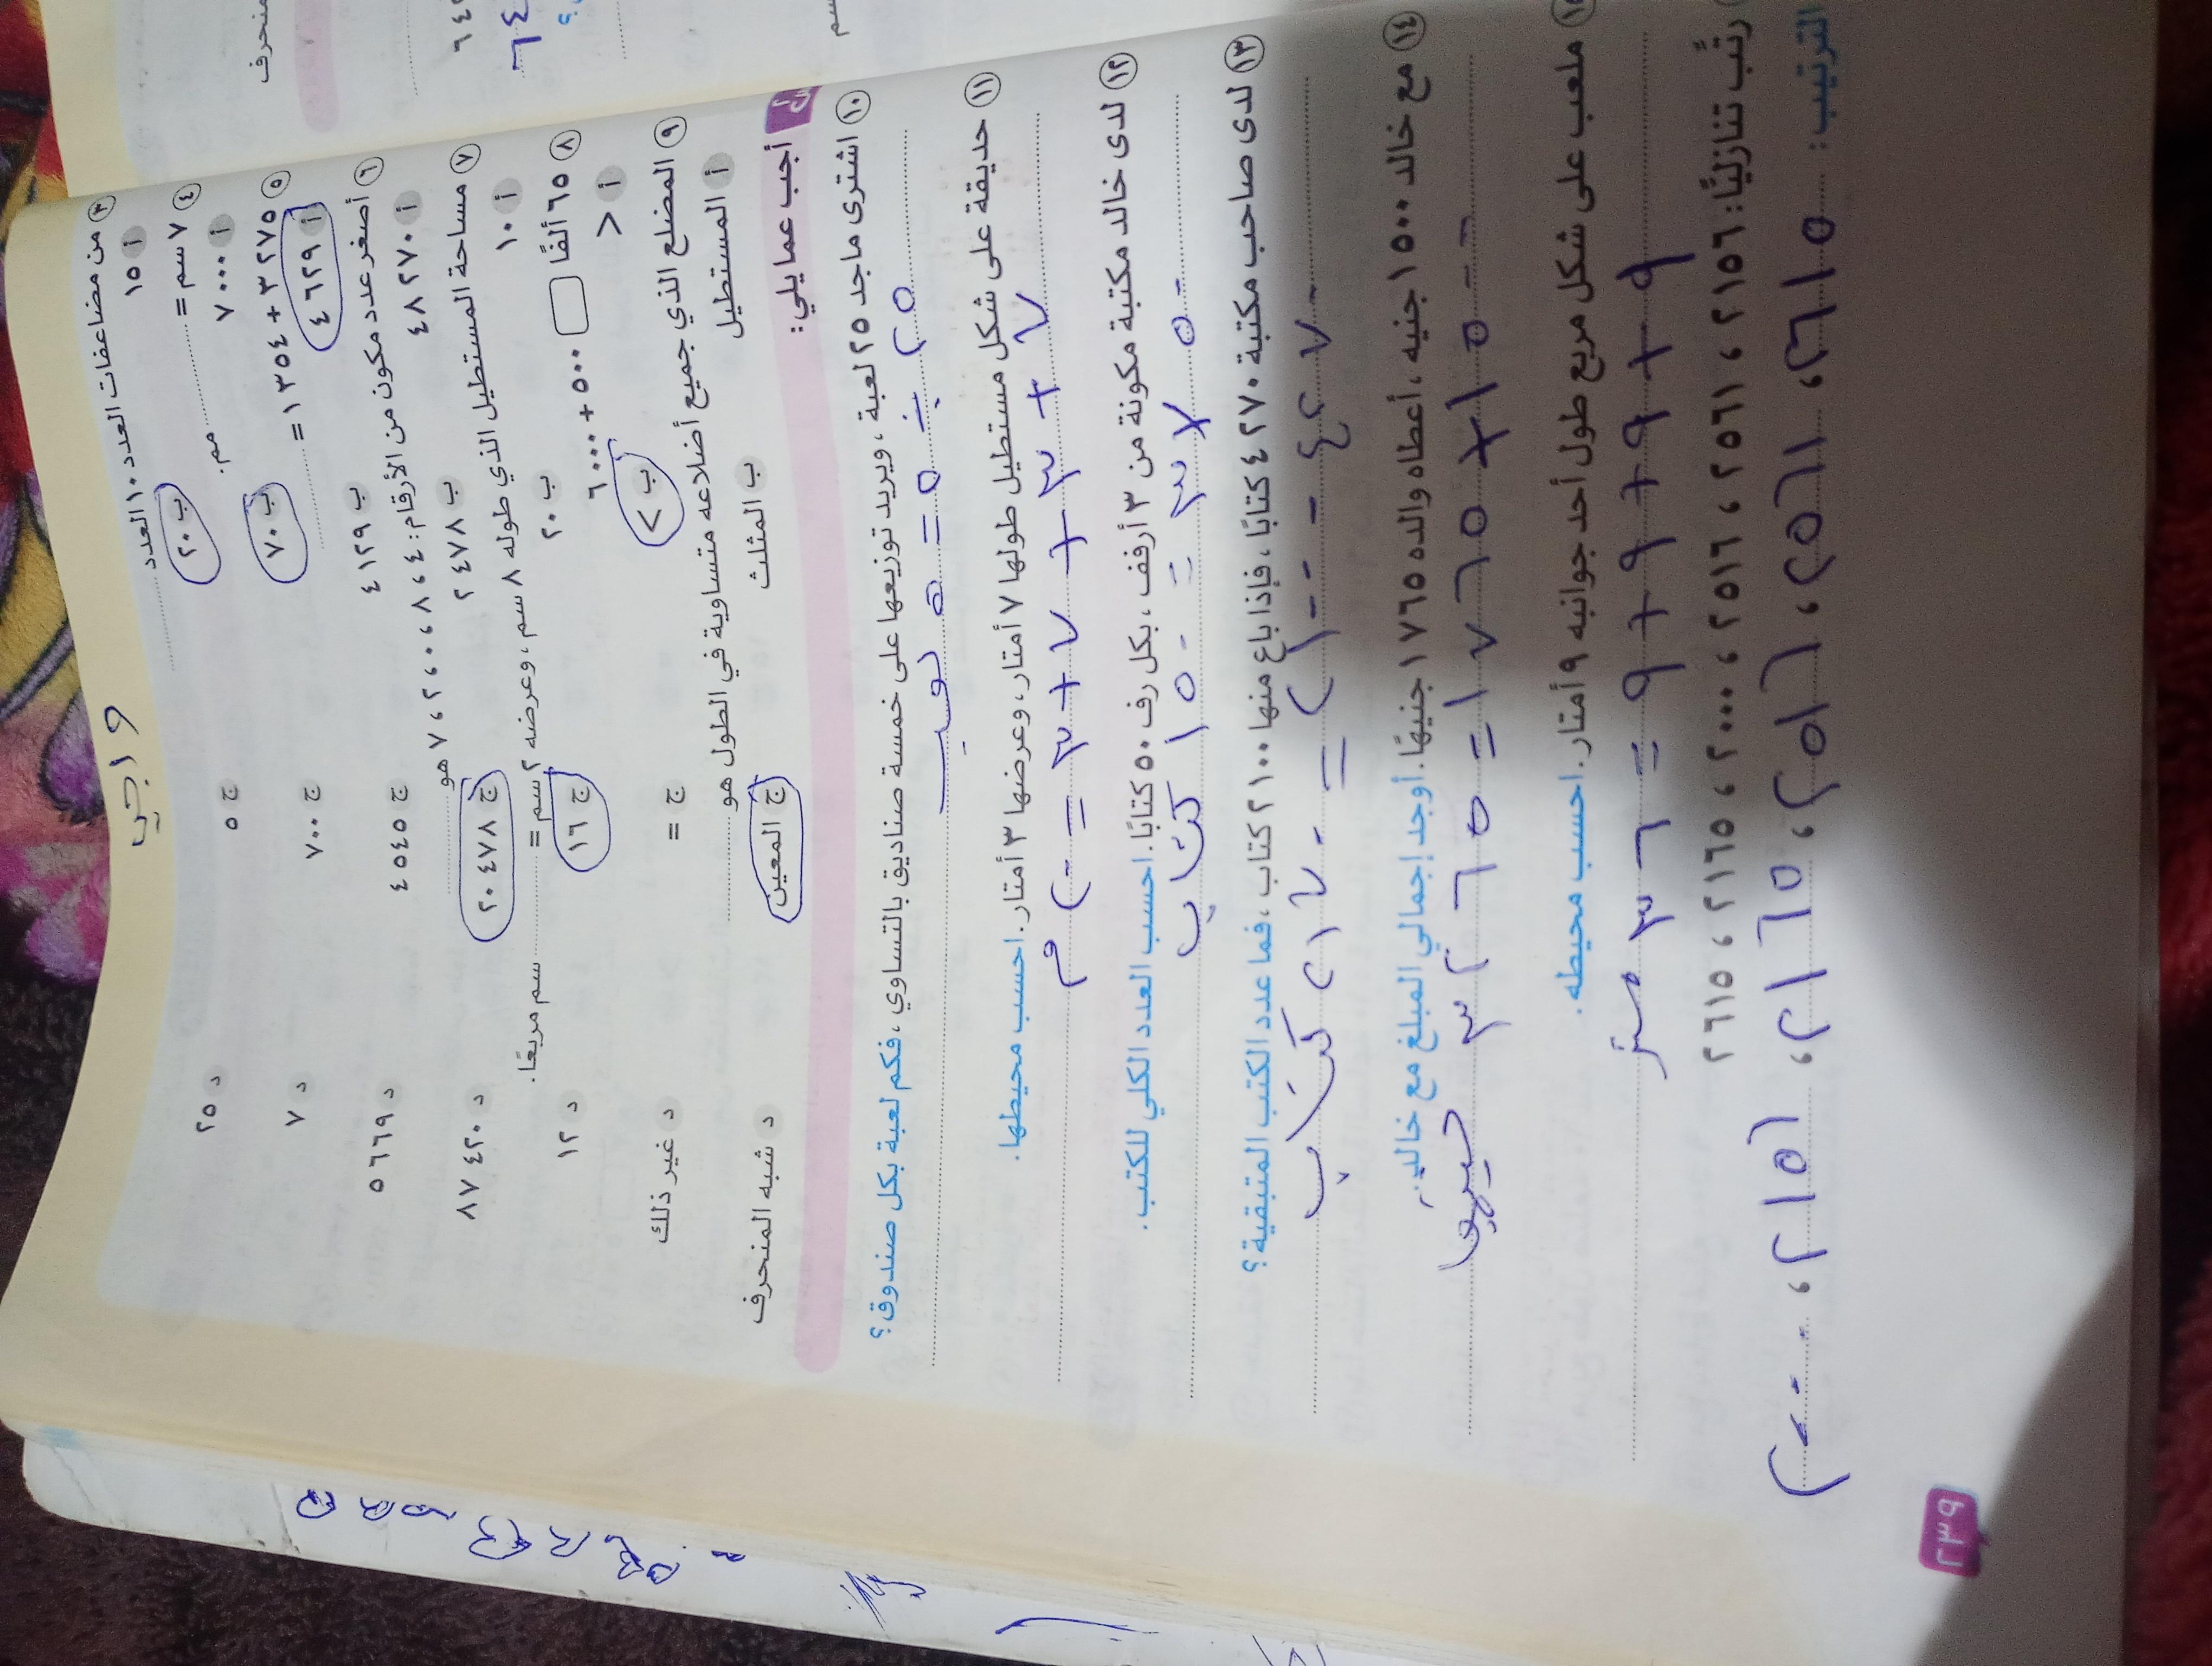 واجب
٣ من مضاعفات العدد ١٠ العدد
أ ١٥ ب ٢٠ ج ٥ د ٢٥
٤ ٧ سم = مم.
أ ٧٠٠٠ ب ٧٠ ج ٧٠٠ د ٧
٥ ٣٢٧٥ + ١٣٥٤ =
أ ٤٦٢٩ ب ٤١٢٩ ج ٤٥٤٥ د ٥٦٦٩
٦ أصغر عدد مكون من الأرقام: ٤ ، ٨ ، ٠ ، ٢ ، ٧ هو
أ ٤٨٢٧٠ ب ٢٤٧٨ ج ٢٠٤٧٨ د ٨٧٤٢٠
٧ مساحة المستطيل الذي طوله ٨ سم ، وعرضه ٢ سم = سم مربعًا.
أ ١٠ ب ٢٠ ج ١٦ د ١٢
٨ ٦٥ ألفًا ٥٠٠ + ٦٠٠٠
أ > ب < ج = د غير ذلك
٩ المضلع الذي جميع أضلاعه متساوية في الطول هو
أ المستطيل ب المثلث ج المعين د شبه المنحرف
أجب عما يلي:
١٠ اشترى ماجد ٢٥ لعبة ، ويريد توزيعها على خمسة صناديق بالتساوي ، فكم لعبة بكل صندوق؟
٢٥ ÷ ٥ = ٥
١١ حديقة على شكل مستطيل طولها ٧ أمتار ، وعرضها ٣ أمتار. احسب محيطها.
٧ + ٣ + ٧ + ٣ = ٢٠ م
١٢ لدى خالد مكتبة مكونة من ٣ أرفف ، بكل رف ٥٠ كتابًا. احسب العدد الكلي للكتب.
٥٠ × ٣ = ١٥٠ كتاب
١٣ لدى صاحب مكتبة ٤٢٧٠ كتابًا ، فإذا باع منها ٢١٠٠ كتاب ، فما عدد الكتب المتبقية؟
٤٢٧٠ - ٢١٠٠ = ٢١٧٠ كتاب
١٤ مع خالد ١٥٠٠ جنيه ، أعطاه والده ١٧٦٥ جنيهًا. أوجد إجمالي المبلغ مع خالد.
١٥٠٠ + ١٧٦٥ = ٣٢٦٥ جنيها
ملعب على شكل مربع طول أحد جوانبه ٩ أمتار. احسب محيطه.
٩ + ٩ + ٩ + ٩ = ٣٦ متر
رتّب تنازليًّا: ٢١٥٦ ، ٢٥٦١ ، ٢٥١٦ ، ٢٠٠٠ ، ٢١٦٥ ، ٢٦١٥
الترتيب: ٢٦١٥ ، ٢٥٦١ ، ٢٥١٦ ، ٢١٦٥ ، ٢١٥٦ ، ٢٠٠٠
٢٣٩